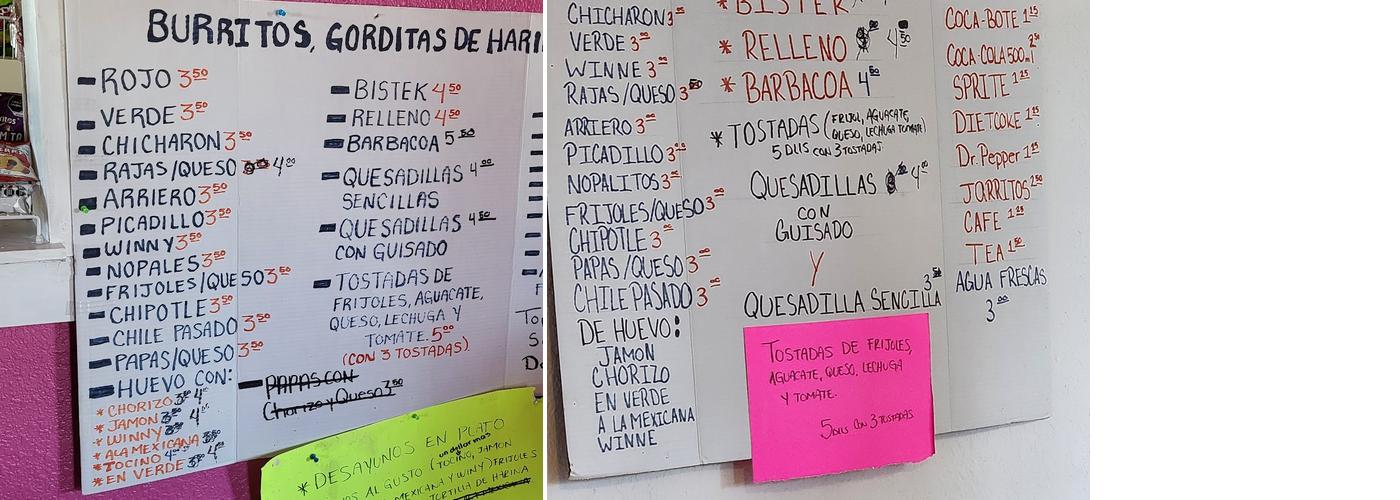 BURRITOS, GORDITAS DE
ROJO 3.50
VERDE 3.50
CHICHARON 3.50
RAJAS/QUESO 4.00
ARRIERO 3.50
PICADILLO 3.50
WINNY 3.50
NOPALES 3.50
FRIJOLES/QUESO 3.50
CHIPOTLE 3.50
CHILE PASADO 3.50
PAPAS/QUESO 3.50
HUEVO CON:
* CHORIZO
* JAMON
* WINNY
* A LA MEXICANA
* TOCINO
* EN VERDE
BISTEK 4.50
RELLENO 4.50
BARBACOA 5.50
QUESADILLAS 4.00
SENCILLAS
QUESADILLAS 4.50
CON GUISADO
TOSTADAS DE
FRIJOLES, AGUACATE,
QUESO, LECHUGA Y
TOMATE. 5.00
(CON 3 TOSTADAS)
PAPAS CON
Chorizo y Queso 3.50
* DESAYUNOS EN PLATO
AL GUSTO (TOCINO, JAMON
MEXICANA Y WINY) FRIJOLES
TORTILLA DE HARINA
CHICHARON 3.00
VERDE 3.00
WINNE 3.00
RAJAS/QUESO 3.50
ARRIERO 3.00
PICADILLO 3.00
NOPALITOS 3.00
FRIJOLES/QUESO 3.00
CHIPOTLE 3.00
PAPAS/QUESO 3.00
CHILE PASADO 3.00
DE HUEVO:
JAMON
CHORIZO
EN VERDE
A LA MEXICANA
WINNE
* BISTEK
* RELLENO 4.50
* BARBACOA 4.50
* TOSTADAS (FRIJOL, AGUACATE,
QUESO, LECHUGA TOMATE)
5 DLLS CON 3 TOSTADAS
QUESADILLAS 4.00
CON
GUISADO
Y
3.50
QUESADILLA SENCILLA
TOSTADAS DE FRIJOLES,
AGUACATE, QUESO, LECHUGA
Y TOMATE.
5 DLLS CON 3 TOSTADAS
COCA-BOTE 1.25
COCA-COLA 500
SPRITE 1.25
DIET COKE 1.25
Dr. Pepper 1.25
JARRITOS 2.50
CAFE
TEA 1.50
AGUA FRESCAS
3.00